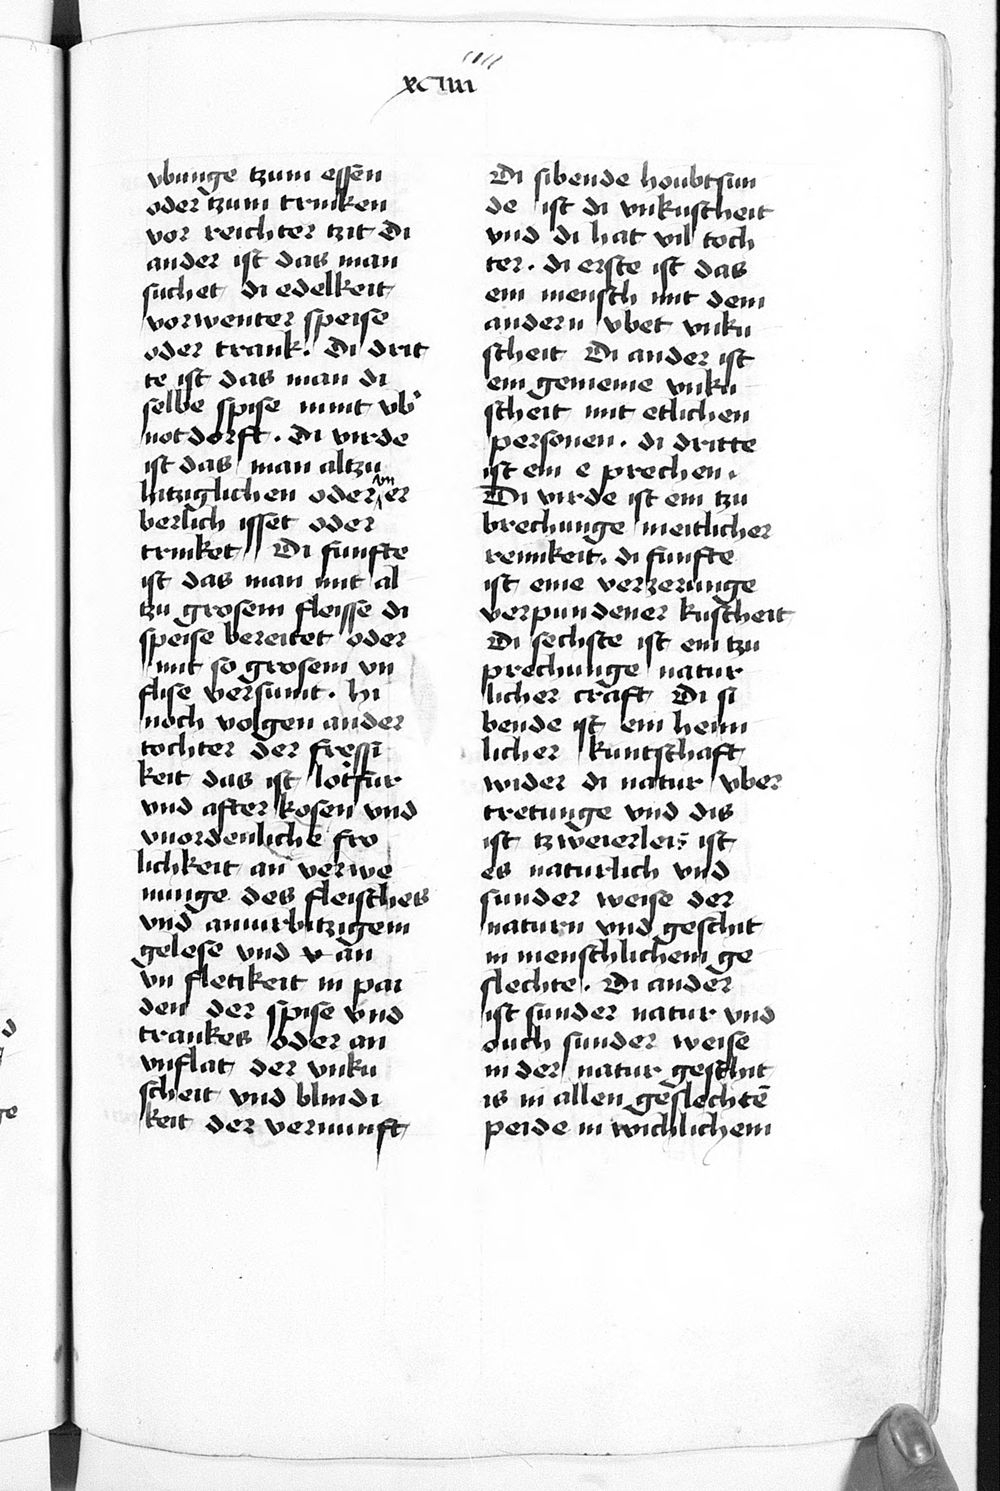 xciiii
vbunge tzum essēn
oder tzum trinken
vor reichter tzit Di
ander ist das man
suchet di edelkeit
vorwenter speise
oder trank. Di drit
te ist das man di
selbe spise nimt vb᾽
notdorft. Di virde
ist das man altzu
hitziglichen oder vn er
berlich isset oder
trinket Di funfte
ist das man mit al
tzu grosem fleisse di
speise bereitet oder
mit so grosem vn
flise versumt. hi
noch volgen ander
tochter der fressi
keit das ist lotfur
vnd after kosen vnd
vnordenliche fro
lichkeit an verwe
nunge des fleisches
vnd
gelese vnd v an
vn fletikeit in pai
den der spise vnd
trankes oder an
vnflat der vnku
scheit vnd blindi
keit der vernunft
Di sibende houbtsun
de ist di vnkuscheit
vnd di hat vil toch
ter. di erste ist das
ein mensch mit dem
andern vbet vnku
scheit Di ander ist
ein gemeine vnku
scheit mit etlichen
personen. di dritte
ist ein e prechen.
Di virde ist ein tzu
brechunge meitlicher
reinikeit. di funfte
ist eine verzerunge
verpundener kuscheit
Di sechste ist ein tzu
prechunge natur
licher craft Di si
bende ist ein heim
licher kuntschaft
wider di natur vber
tretunge vnd dis
ist tzweierlei: ist
es naturlich vnd
sunder weise der
naturn vnd geschit
in menschlichem ge
slechte. Di ander
ist sunder natur vnd
ouch sunder weise
in der natur geschit
is in allen geslechtē
peide in wichlichem